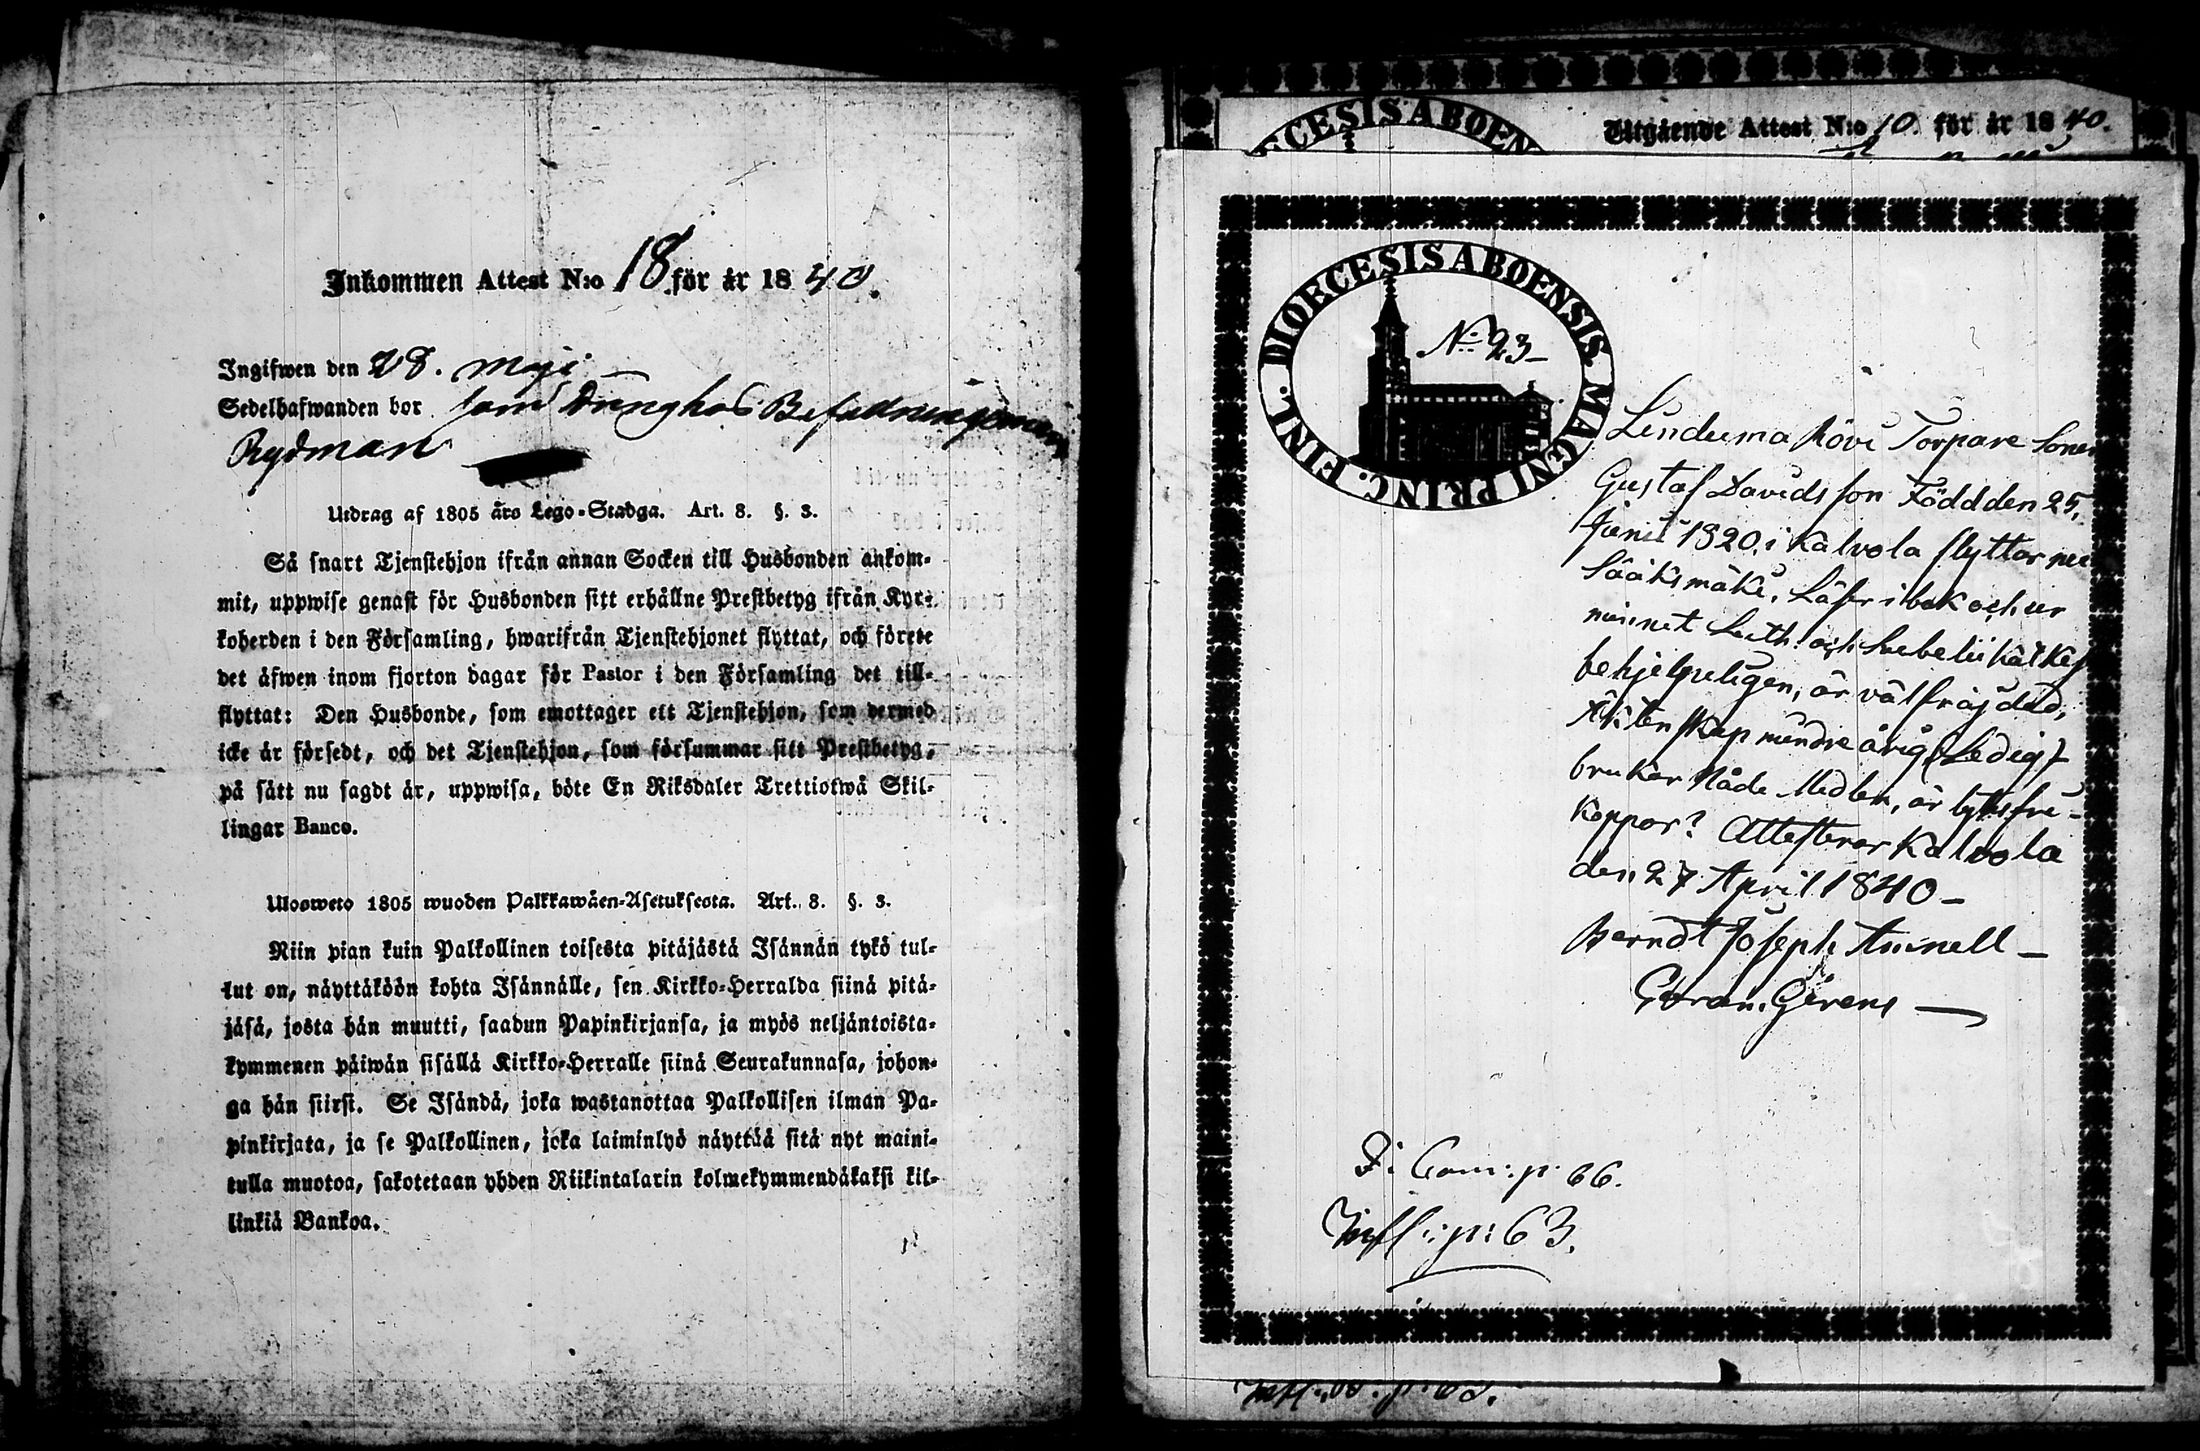 Inkommen Attest N:o 18 för år 1840.
Ingifwen den 28. Maji
Sedelhafwanden bor som Dräng hos Befallningsman
Rydman
Utdrag af 1805 års Lego-Stadga. Art. 8. §. 3.
Så snart Tjenstehjon ifrån annan Socken till Husbonden ankom-
mit, uppwise genast för Husbonden sitt erhållne Prestbetyg ifrån Kyr-
koherden i den Församling, hwarifrån Tjenstehjonet flyttat, och förete
det äfwen inom fjorton dagar för Pastor i den Församling det till-
flyttat: Den Husbonde, som emottager ett Tjenstehjon, som dermed
icke är försedt, och det Tjenstehjon, som försummar sitt Prestbetyg,
på sätt nu sagdt är, uppwisa, böte En Riksdaler Trettiotwå Skil-
lingar Banco.
Ulosweto 1805 wuoden Palkkawäen-Asetuksesta. Art. 8. §. 3.
Niin pian kuin Palkollinen toisesta pitäjästä Isännän tykö tul-
lut on, näyttäköön kohta Isännälle, sen Kirkko-Herralda siinä pitä-
jäsä, josta hän muutti, saadun Papinkirjansa, ja myös neljäntoista-
kymmenen päiwän sisällä Kirkko-Herralle siinä Seurakunnasa, johon-
ga hän siirsi. Se Isändä, joka wastanottaa Palkollisen ilman Pa-
pinkirjata, ja se Palkollinen, joka laiminlyö näyttää sitä nyt maini-
tulla muotoa, sakotetaan yhden Riikintalarin kolmekymmendäkaksi kil-
linkiä Bankoa.
DIOECESIS ABOEN
Utgående Attest N:o 10. för år 1840.
DIOECESIS ABOENSIS. MAGNI PRINC. FINL.
N:o 23-
Torpare Sonen
Gustaf Davidsson Född den 25,
Junii 1820, i Kalvola flyttar
Sääksmäki, Läser i bok och ur
minnet Luth: och
behjelpeligen, är välfräjdad,
Äktenskap mindre årig (Ledig)
brukar Nåde Medlen, är lytesfri-
Koppor? Attesterar Kalvola
den 27 April 1840-
Berndt Joseph Aminell-
p: 66.
Infl: p: 63.